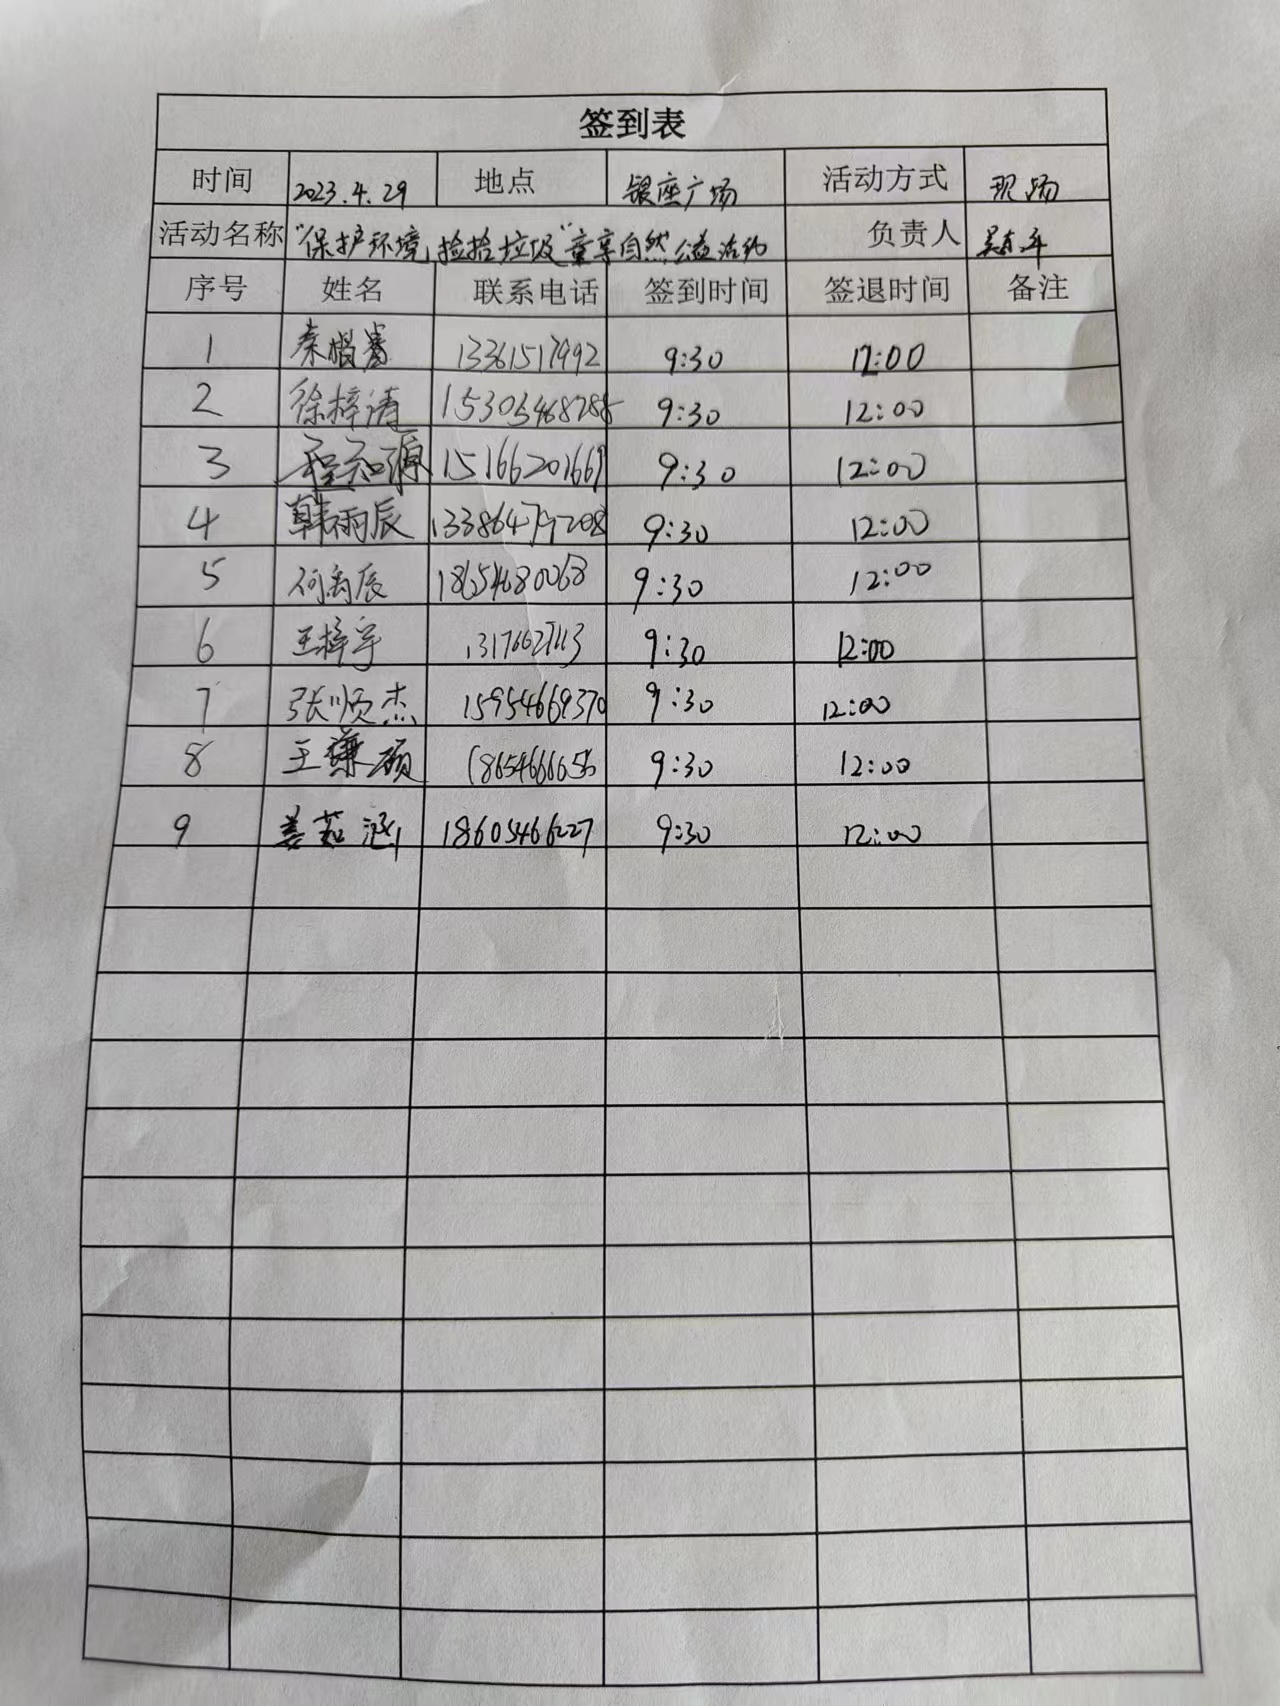 签到表
时间 2023.4.29 地点 银座广场 活动方式 现场
活动名称 "保护环境,捡拾垃圾"童享自然公益活动 负责人
序号 姓名 联系电话 签到时间 签退时间 备注
1 13361517992 9:30 12:00
2 徐梓涛 15305468288 9:30 12:00
3 程知源 15166201669 9:30 12:00
4 韩雨辰 13386479208 9:30 12:00
5 何禹辰 18654680068 9:30 12:00
6 王梓宇 13176627113 9:30 12:00
7 张顺杰 15954669370 9:30 12:00
8 王谦硕 18654666656 9:30 12:00
9 姜茹涵 18605466227 9:30 12:00